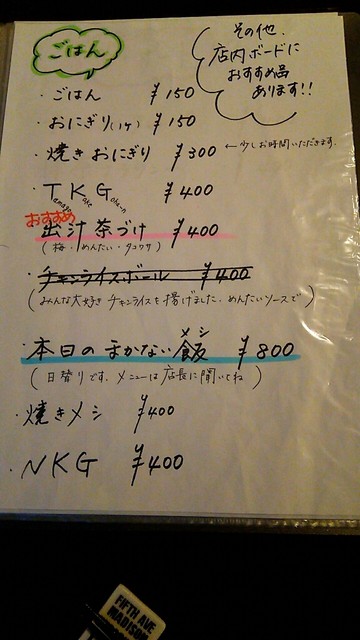 ごはん
その他、
店内ボードに
おすすめ品
あります!!
・ごはん ¥150
・おにぎり(1ヶ) ¥150
・焼きおにぎり ¥300 ←少しお時間いただきます。
・TKG ¥400
Tamago Kake Goha-n
おすすめ
出汁茶づけ ¥400
(梅・めんたい・タコワサ)
・チキンライスボール ¥400
(みんな大好きチキンライスを揚げました。めんたいソースで)
メシ
・本日のまかない飯 ¥800
(日替りです。メニューは店長に聞いてね)
・焼きメシ ¥400
・NKG ¥400
FIFTH AVE
MADISON